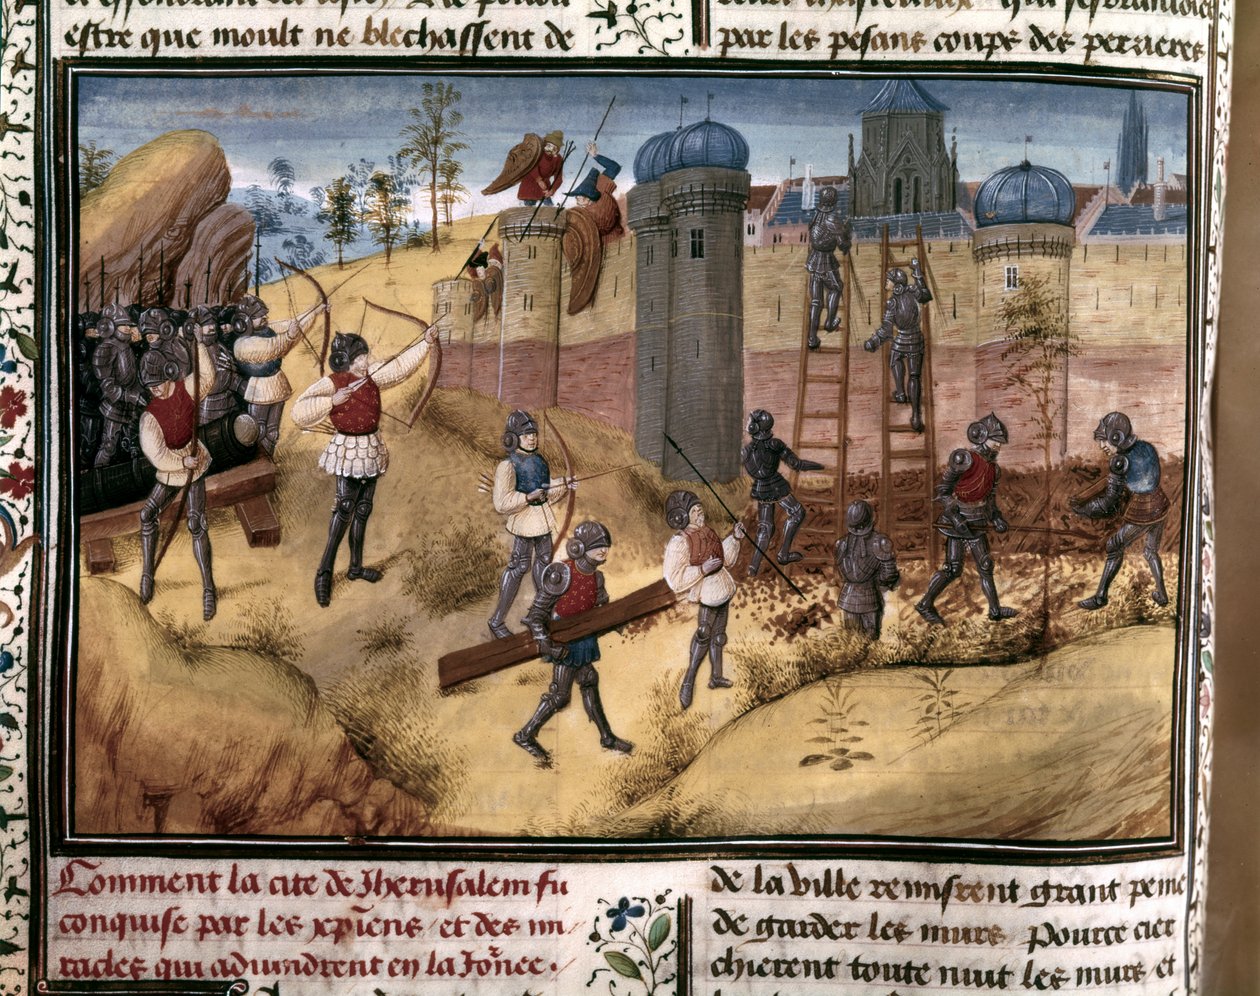 estre que moult ne blechassent de
par les pesans coups des perrieres
Comment la cite de Jherusalem fu
conquise par les xpiens et des mi
racles qui advindrent en la Jornee.
de la ville remisrent grant peine
de garder les murs pource cier
chierent toute nuit les murs et